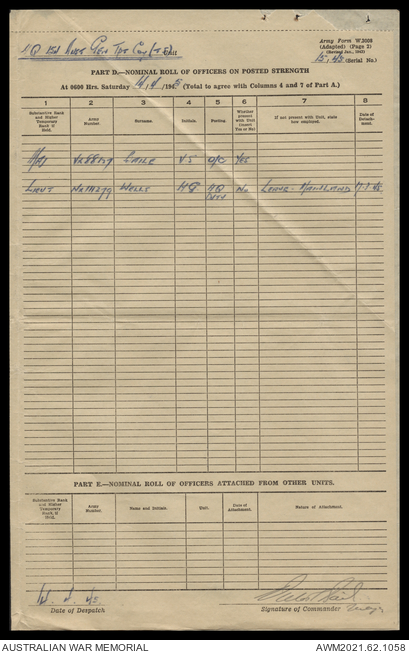 Army Form W.3008
(Adapted) (Page 2)
15/45 (Serial No.)
PART D.—NOMINAL ROLL OF OFFICERS ON POSTED STRENGTH
At 0600 Hrs. Saturday 14/4/1945 (Total to agree with Columns 4 and 7 of Part A.)
1 2 3 4 5 6 7 8
Substantive Rank and Higher Temporary Rank if Held.
Army Number.
Surname.
Initials.
Posting.
Whether present with Unit (insert Yes or No)
If not present with Unit, state how employed.
Date of Detachment.
Maj V S O/C Yes
Lieut Wells H G HQ No Leave - Mainland
PART E.—NOMINAL ROLL OF OFFICERS ATTACHED FROM OTHER UNITS.
Substantive Rank and Higher Temporary Rank if Held.
Army Number.
Name and Initials.
Unit.
Date of Attachment.
Nature of Attachment.
Date of Despatch
Signature of Commander
AUSTRALIAN WAR MEMORIAL
AWM2021.62.1058